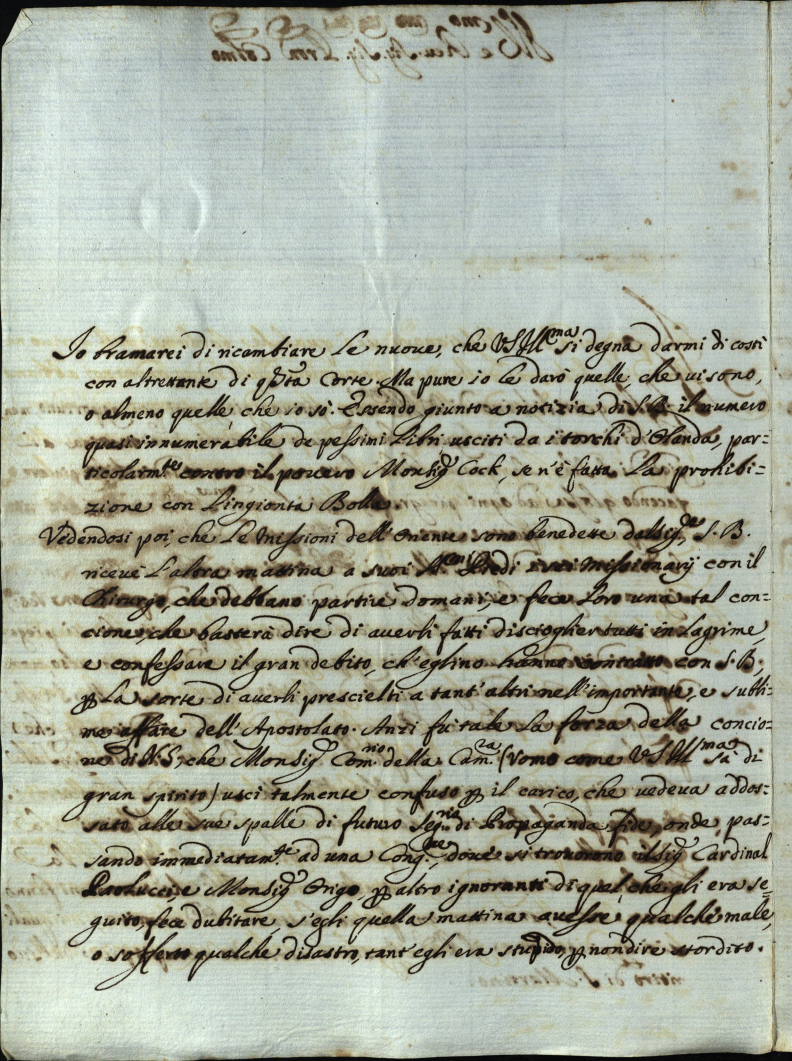 Io bramarei di ricambiare le nuove, che VSIll.ma si degna darmi di costì
con altrettante di q̃sta Corte. Ma pure io le darò quelle, che vi sono,
o almeno quelle che io sò. Essendo giunto a notizia di S. B. il numero
quasi innumerabile de pessimi libri usciti da i torchi d'Olanda, par=
ticolarm.te contro il povero Monsig.r Cock, se n'è fatta la prohibi=
zione con l'ingionta Bolla
Vedendosi poi, che le Missioni dell'Oriente sono benedette dal Sig.re, S. B.
ricevè l'altra mattina a suoi S.mi Piedi i Missionarij con il
Chirurgo, che debbano partire domani, e fece loro una tal con=
cione, che basterà dire di averli fatti disciogliere tutti in lagrime,
e confessare il gran debito, ch'eglino hanno contratto con S. B.,
ꝑ la sorte di averli prescielti a tant'altri nell'importante, e subli=
me affare dell'Apostolato. Anzi fù tale la forza della concio=
ne di N. S., che Monsig.r Com.rio della Cam.ra (Vomo come VSIll.ma sà di
gran spirito) uscì talmente confuso ꝑ il carico, che vedeva addos=
sato alle sue spalle di futuro Seg.rio di Propaganda fide, onde, pas=
sando immediatam.te ad una Cong.ne, dove si trovorono il Sig.r Cardinal
Paolucci, e Monsig.r Origo, ꝑ altro ignoranti di quel, che gli era se=
guito, fece dubitare, s'egli quella mattina avesse qualche male,
o sofferto qualche disastro, tant'egli era stupido, ꝑ non dire stordito.